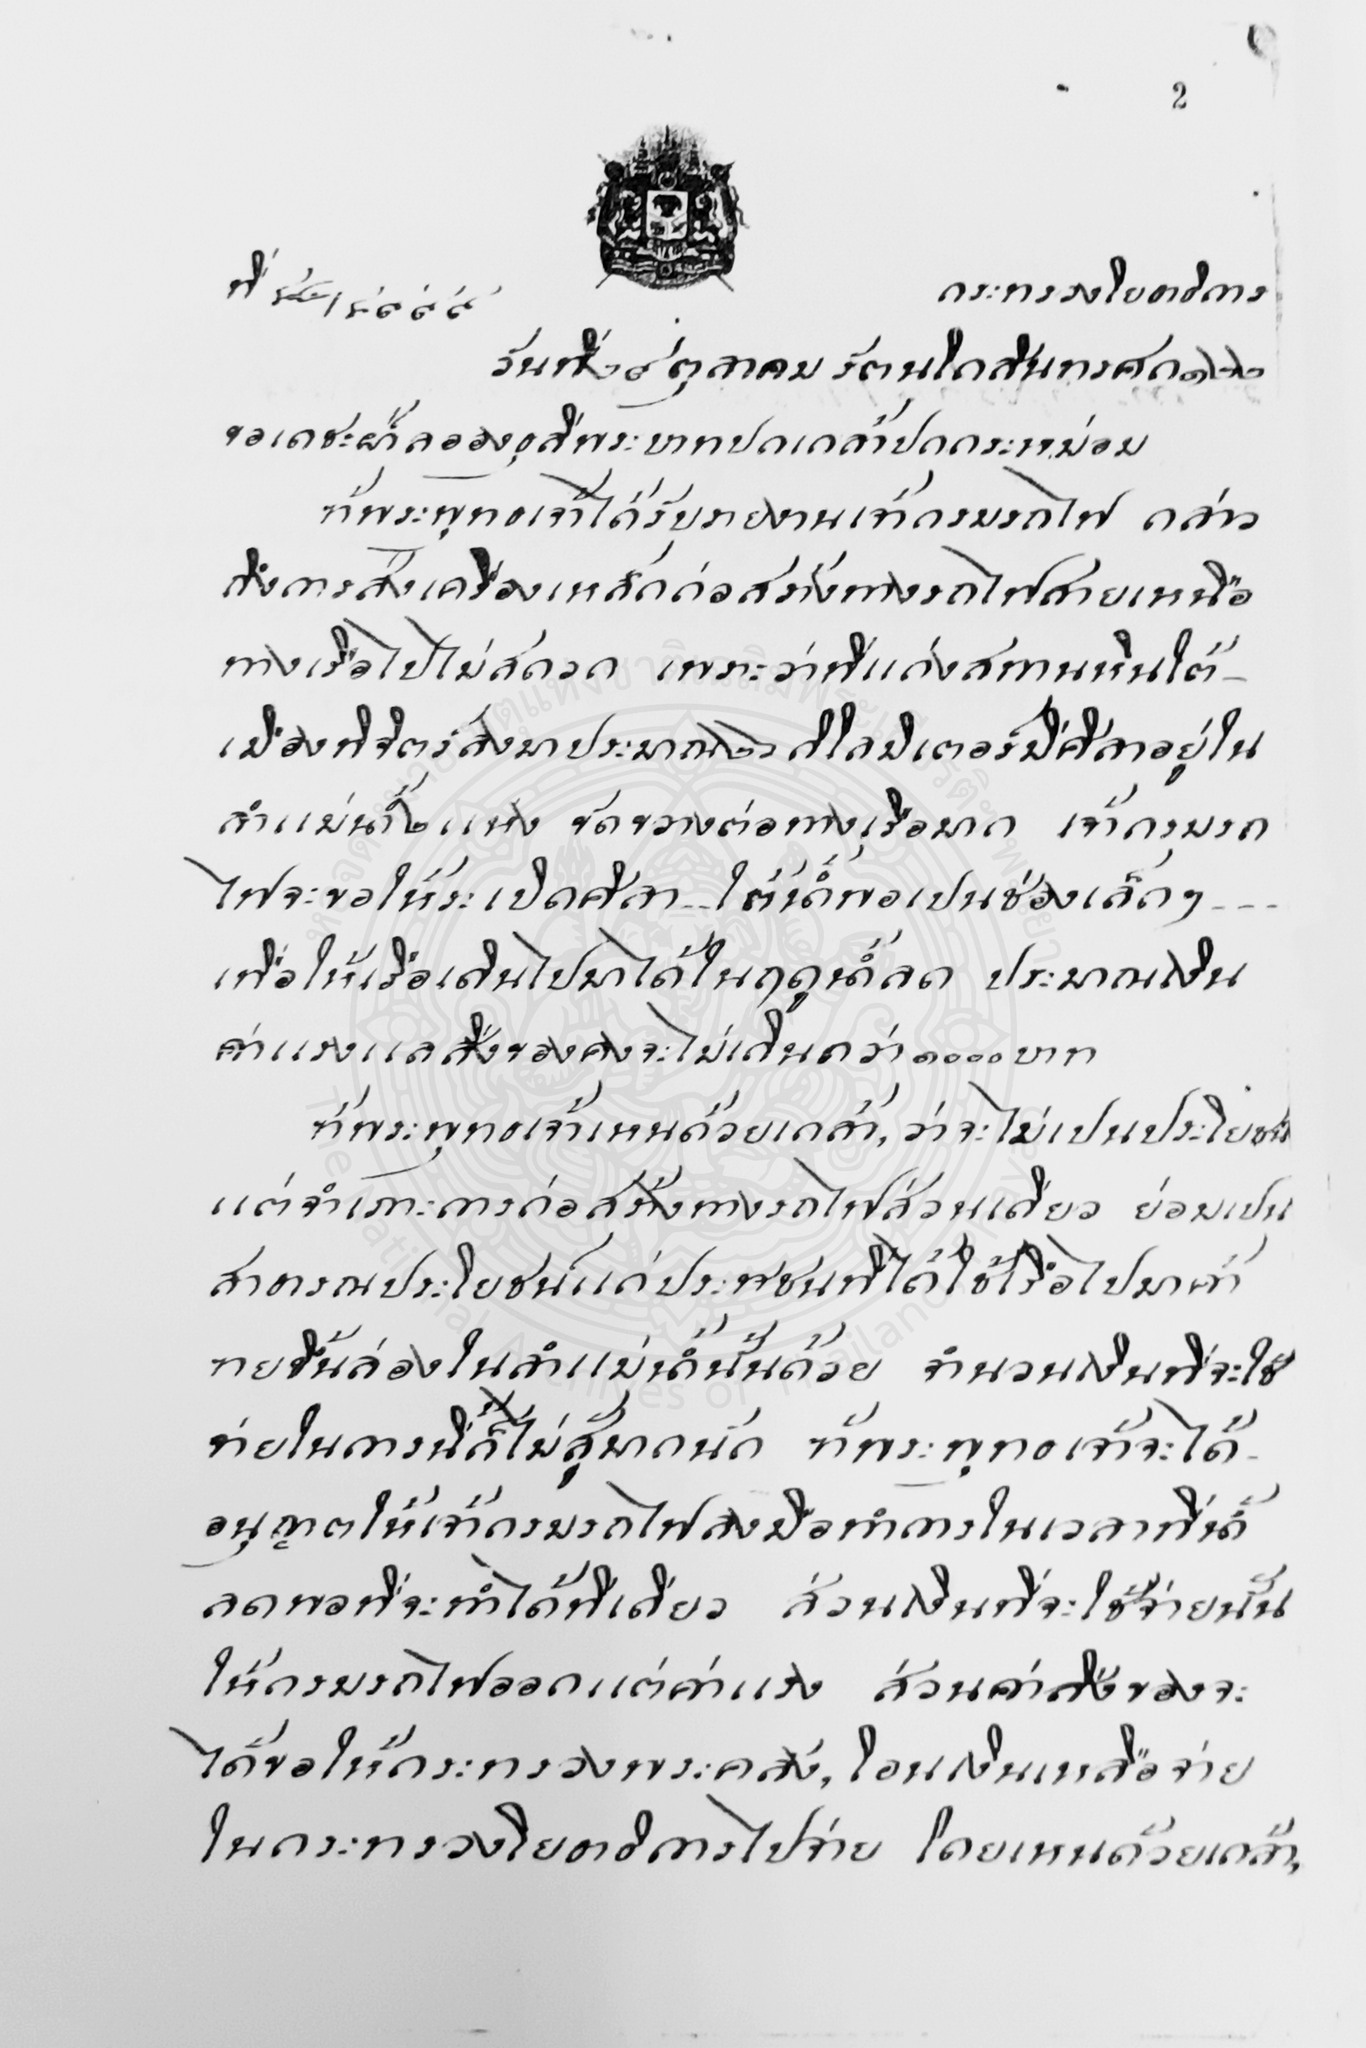 2
ที่
กระทรวงโยธาธิการ
วันที่ ๒๙ ตุลาคม รัตนโกสินทรศก ๑๒๒
ขอเดชะฝ่าลอองธุลีพระบาทปกเกล้าปกกระหม่อม
ข้าพระพุทธเจ้าได้รับรายงานเจ้ากรมรถไฟ กล่าว
ถึงการส่งเครื่องเหล็กก่อสร้างทางรถไฟสายเหนือ
ทางเรือไปไม่สดวก เพราะว่าที่แก่งสพานหินใต้
เมืองพิจิตรลงมาประมาณ ๒๖ กิโลมิเตอร์มีศิลาอยู่ใน
ลำแม่น้ำ ๒ แห่ง ขัดขวางต่อทางเรือมาก เจ้ากรมรถ
ไฟจะขอให้ระเบิดศิลา ใต้น้ำพอเปนช่องเล็กๆ
เพื่อให้เรือเดินไปมาได้ในฤดูน้ำลด ประมาณเงิน
ค่าแรงแลสิ่งของคงจะไม่เกินกว่า ๑๐๐๐ บาท
ข้าพระพุทธเจ้าเหนด้วยเกล้าฯ ว่าจะไม่เปนประโยชน์
แต่จำเภาะการก่อสร้างทางรถไฟส่วนเดียว ย่อมเปน
สาธารณประโยชน์แก่ประชาชนที่ได้ใช้เรือไปมาค้า
ขายขึ้นล่องในลำแม่น้ำนั้นด้วย จำนวนเงินที่จะใช้
จ่ายในการนี้ก็ไม่สู้มากนัก ข้าพระพุทธเจ้าจะได้
อนุญาตให้เจ้ากรมรถไฟลงมือทำการในเวลาที่น้ำ
ลดพอที่จะทำได้ทีเดียว ส่วนเงินที่จะใช้จ่ายนั้น
ให้กรมรถไฟออกแต่ค่าแรง ส่วนค่าสิ่งของจะ
ได้ขอให้กระทรวงพระคลังฯ โอนเงินเหลือจ่าย
ในกระทรวงโยธาธิการไปจ่าย โดยเหนด้วยเกล้าฯ
หอจดหมายเหตุแห่งชาติเฉลิมพระเกียรติฯ พะเยา
The National Archives of Thailand